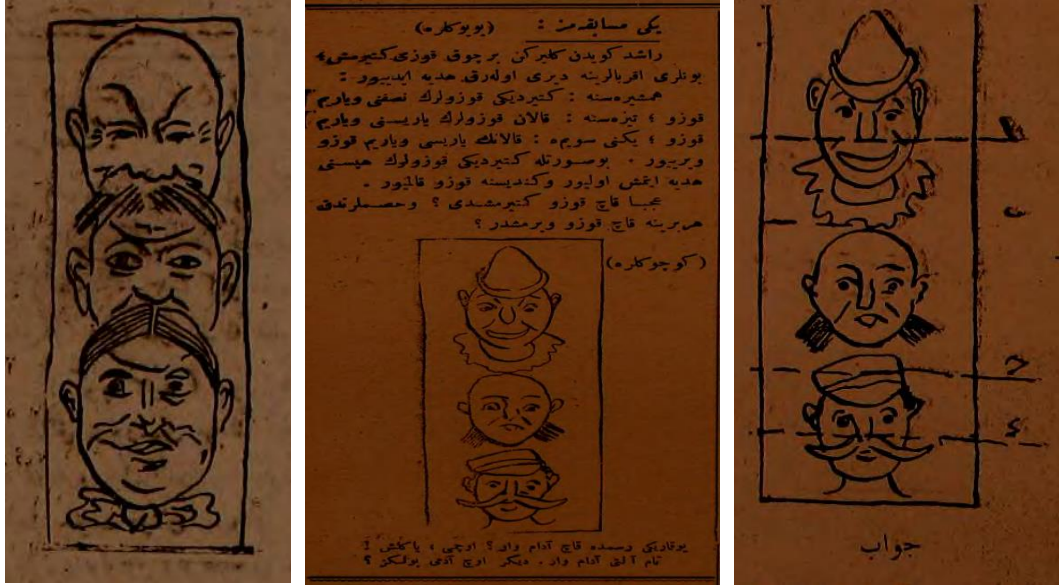 یکی مسابقه‌مز : (بویوکلره)
راشد کویدن کلیرکن بر چوق قوزی کتیرمشی
بونلری اقربالرینه دیری اوله‌رق هدیه ایدییور :
همشیره‌سنه : کتیردیکی قوزولرك نصفنی ویاریم
قوزو ؛ تیزه‌سنه : قالان قوزولرك یاریسنی ویاریم
قوزو ؛ یکنی سویمه : قالانك یاریسی ویاریم قوزو
ویرییور . بوصورتله کتیردیکی قوزولرك هپسنی
هدیه ایتمش اولیور وکندیسنه قوزو قالمیور .
عجبا قاچ قوزو کتیرمشدی ؟ وخصملرندن
هربرینه قاچ قوزو ویرمشدر ؟
(کوچوکلره)
یوقاریکی رسمده قاچ آدام وار ؟ اوچمی ، یاکلش !
تام آلتی آدام وار . دیکر اوچ آدمی بولکز ؟
جواب